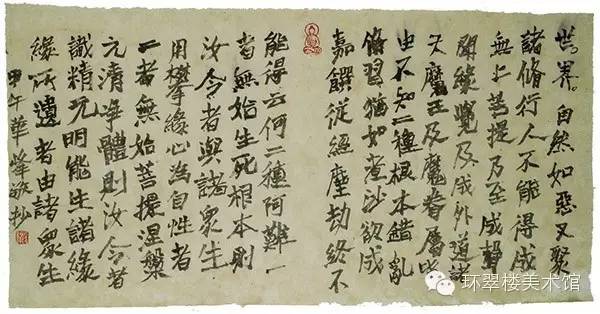 世界。自然如惡叉聚
諸脩行人不能得成
無上菩提乃至成聲
聞緣覺及成外道諸
天魔王及魔眷屬皆
由不知二種根本錯亂
脩習猶如煮沙欲成
嘉饌從經塵劫終不
能得云何二種阿難一
者無始生死根本則
汝今者與諸眾生
用攀緣心為自性者
二者無始菩提涅槃
元清淨體則汝今者
識精元明能生諸緣
緣所遺者由諸眾生
甲午華峰敬抄
环翠楼美术馆